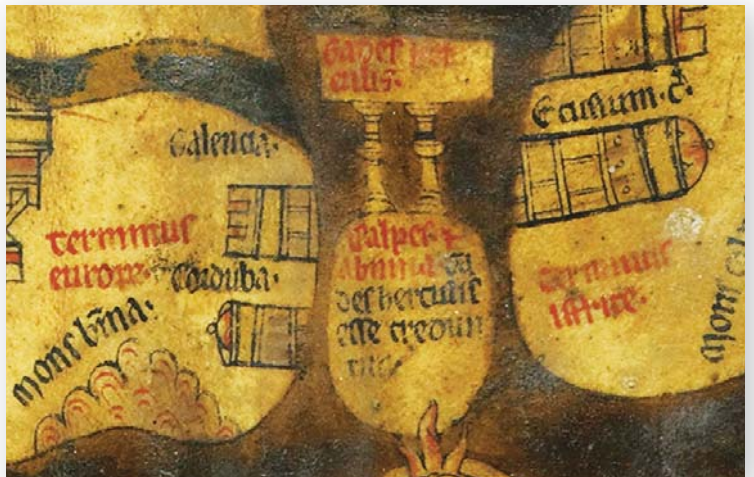 Gades her
culis·
Ecusium·c̄·
Valencia·
terminus
europe·
Corduba·
Calpes ⁊
abinna ga
des herculis
esse credun
tur·
terminus
affrice·
mons
mons